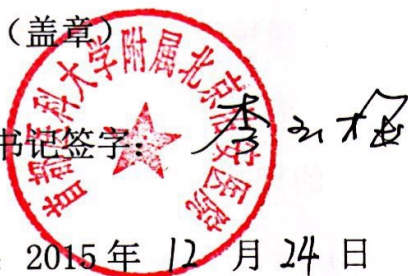 (盖章)
首都医科大学附属北京佑安医院
书记签字: 李玉梅
2015 年 12 月 24 日